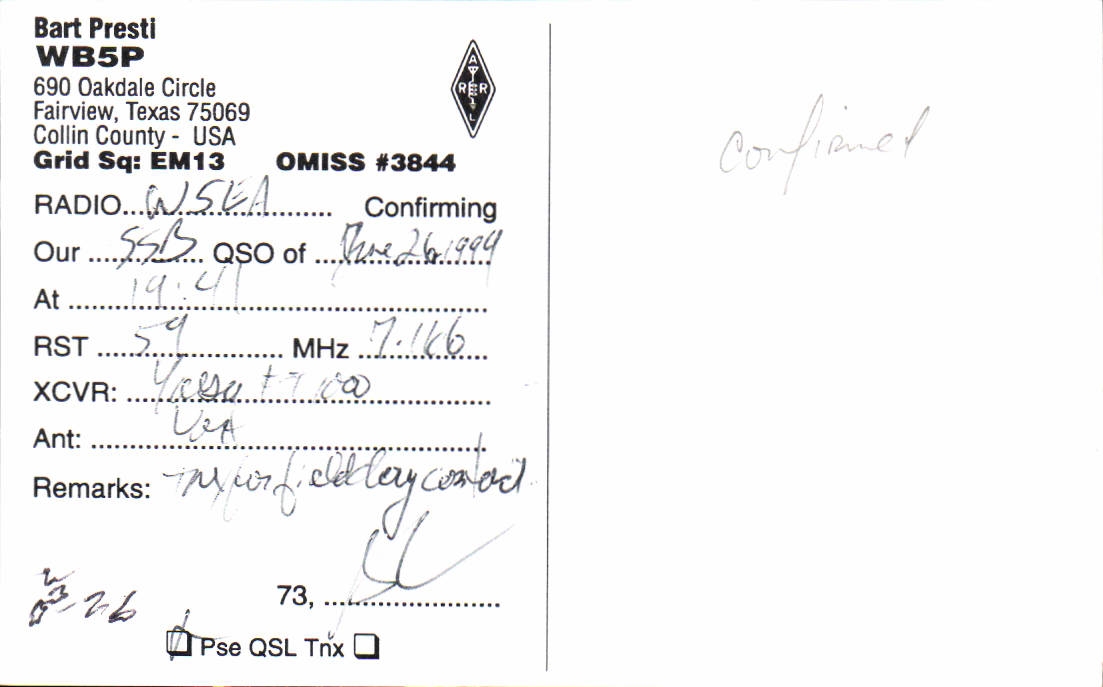 Bart Presti
WB5P
690 Oakdale Circle
Fairview, Texas 75069
Collin County - USA
Grid Sq: EM13 OMISS #3844
ARRL
RADIO... W5EA ... Confirming
Our ... SSB ... QSO of ... June 26, 1994
At ... 19:41
RST ... 59 ... MHz ...
XCVR: ... Yaesu
Ant: ...
Remarks: Tnx for field day contact
73, ...
Pse QSL Tnx
confirmed